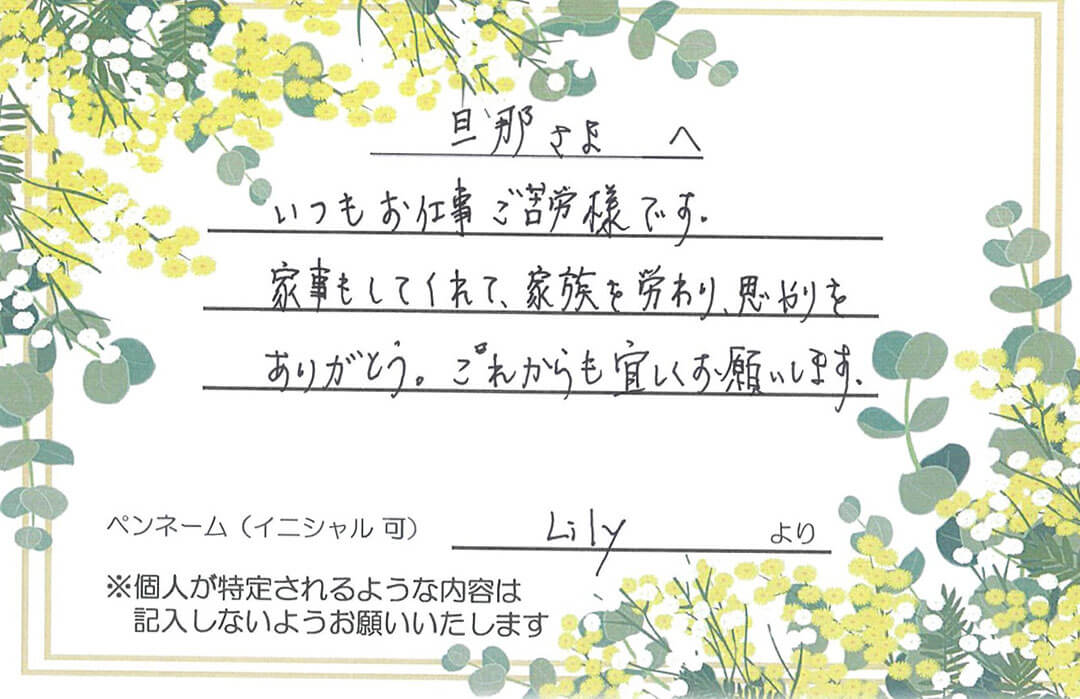 旦那さま へ
いつもお仕事ご苦労様です。
家事もしてくれて、家族を労わり、思やりを
ありがとう。これからも宜しくお願いします。
ペンネーム（イニシャル 可） Lily より
※個人が特定されるような内容は
記入しないようお願いいたします